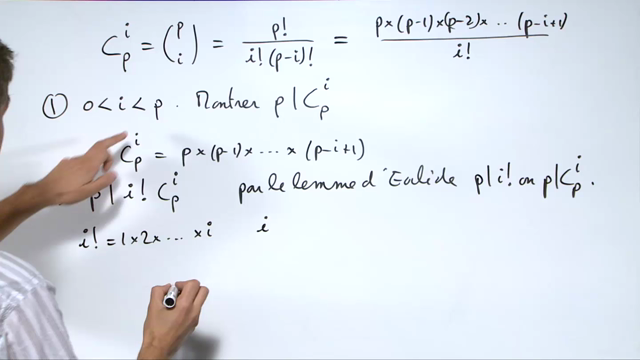 C_p^i = (p i) = p! / i!(p-i)! = p×(p-1)×(p-2)× .. (p-i+1) / i!
① 0 < i < p . Montrer p | C_p^i
C_p^i = p×(p-1)× ... × (p-i+1)
p | i! C_p^i par le lemme d'Euclide p | i! ou p | C_p^i .
i! = 1×2× ... ×i i